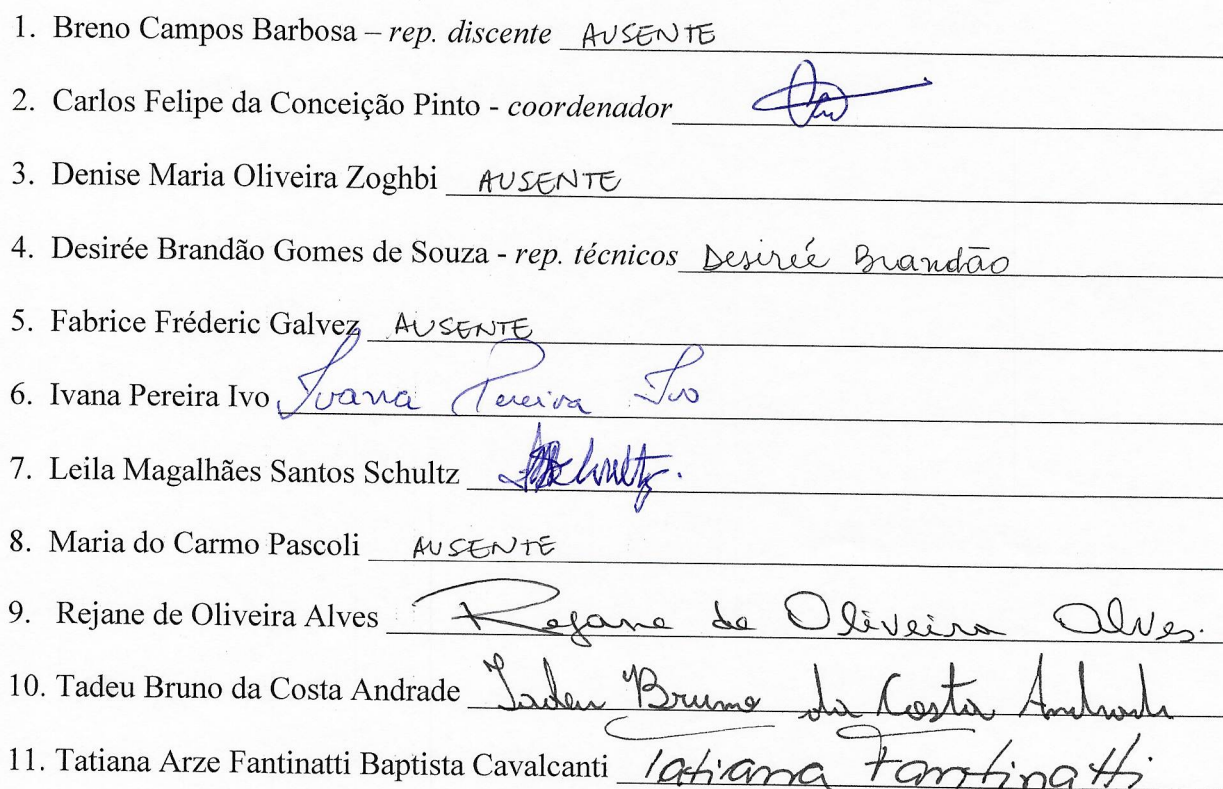 1. Breno Campos Barbosa – rep. discente AUSENTE
2. Carlos Felipe da Conceição Pinto - coordenador
3. Denise Maria Oliveira Zoghbi AUSENTE
4. Desirée Brandão Gomes de Souza - rep. técnicos Desirée Brandão
5. Fabrice Fréderic Galvez AUSENTE
6. Ivana Pereira Ivo Ivana Pereira Ivo
7. Leila Magalhães Santos Schultz Schultz.
8. Maria do Carmo Pascoli AUSENTE
9. Rejane de Oliveira Alves Rejane de Oliveira Alves.
10. Tadeu Bruno da Costa Andrade Tadeu Bruno da Costa Andrade
11. Tatiana Arze Fantinatti Baptista Cavalcanti Tatiana Fantinatti